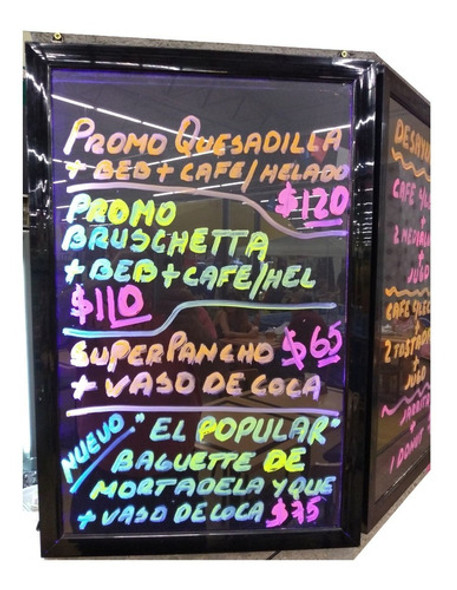 PROMO QUESADILLA
+ BEB + CAFE/HELADO
$120
PROMO
BRUSCHETTA
+ BEB + CAFE/HEL
$110
SUPERPANCHO $65
+ VASO DE COCA
NUEVO "EL POPULAR"
BAGUETTE DE
MORTADELA Y QUE
+ VASO DE COCA $75
DESAYU
CAFE
+
2 MEDIALU
+
JUGO
CAFE
+
2 TOSTADA
+
JUGO
JARRITA
+
1 DONUT